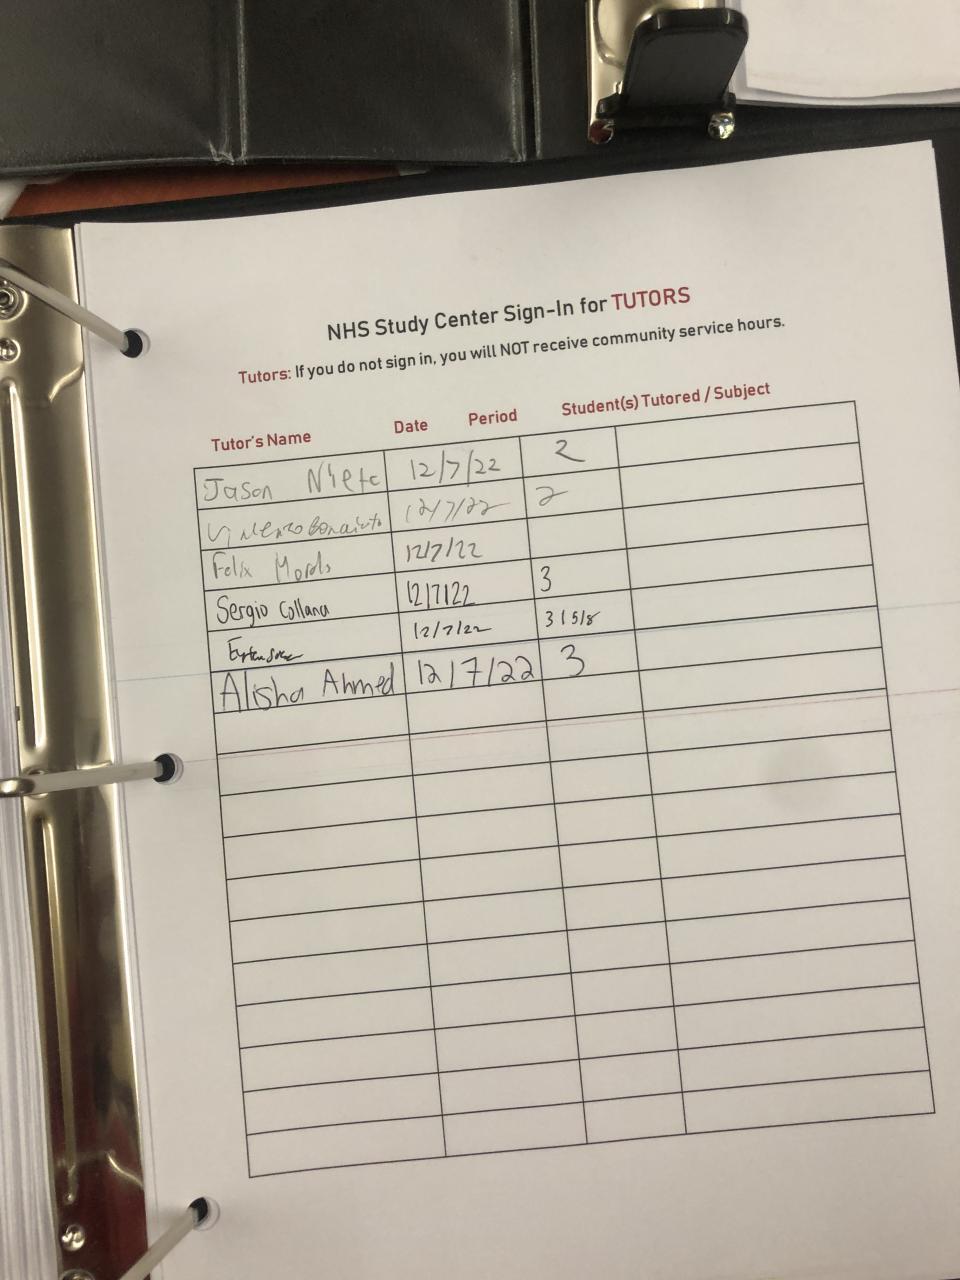 NHS Study Center Sign-In for TUTORS
Tutors: If you do not sign in, you will NOT receive community service hours.
Tutor's Name Date Period Student(s) Tutored / Subject
Jason 12/7/22 2
12/7/22 2
Felix 12/7/22
Sergio Collana 12/7/22 3
12/7/22 3 / 5/8
Alisha Ahmed 12/7/22 3